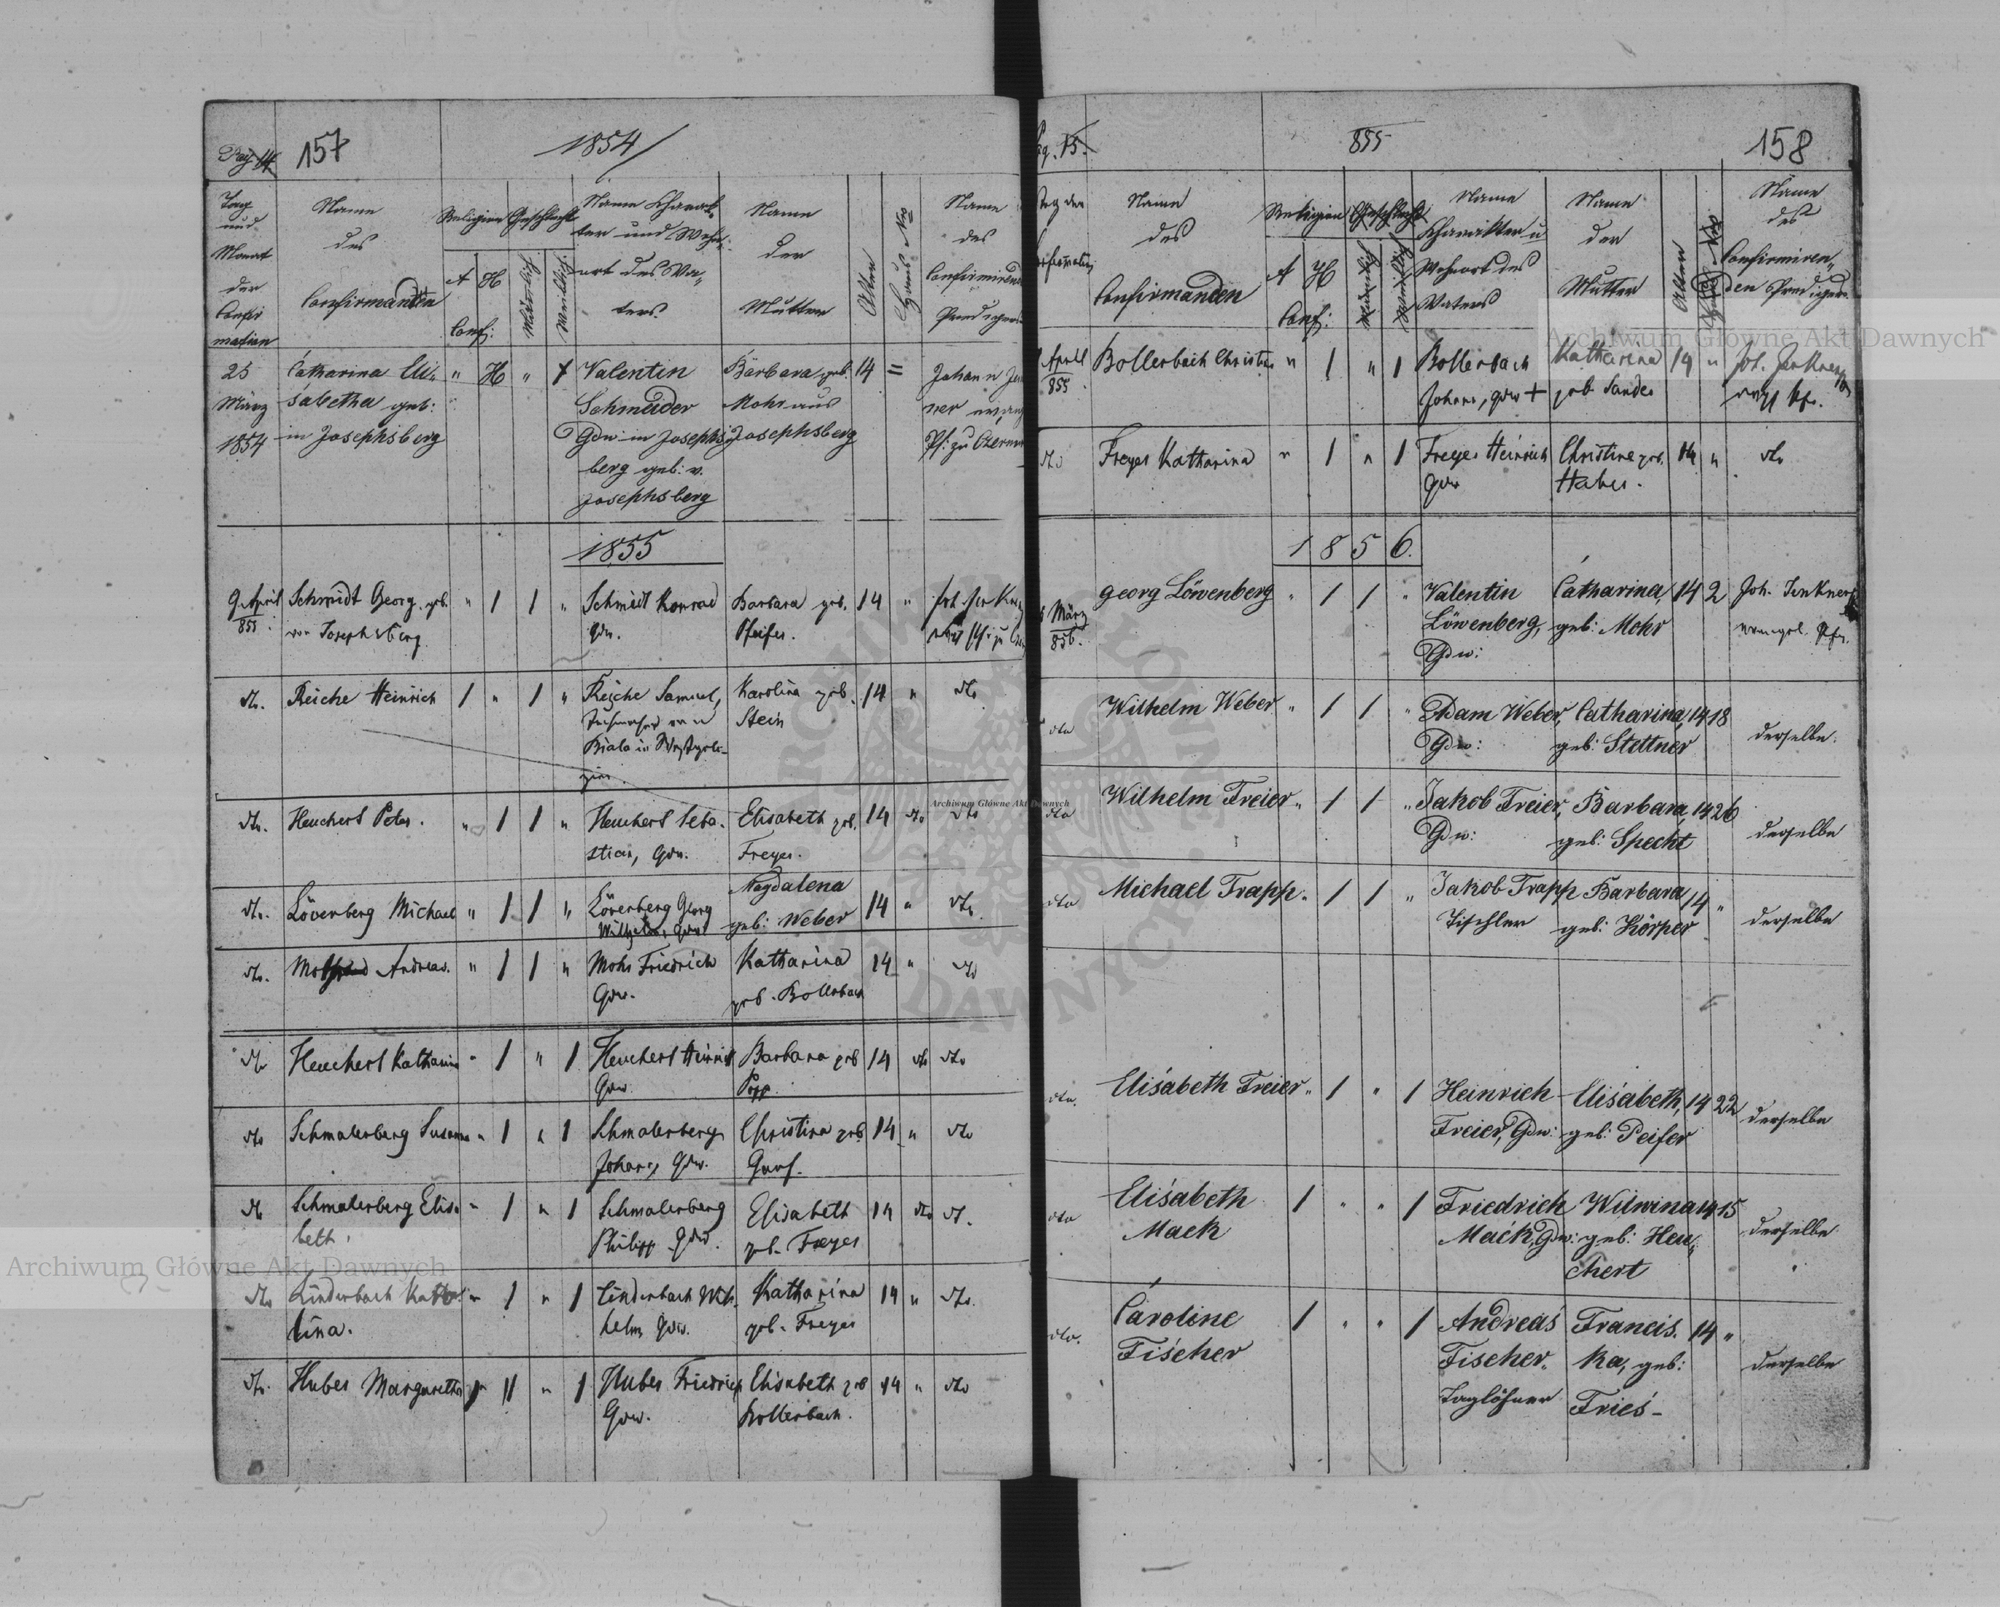 Pag. 14
157
1854
Tag und Monat der Confirmation
Name des Confirmanden
Religion
A H
Conf:
Geschlecht
Männlich
Weiblich
Name Charakter und Wohnort des Vaters
Name der Mutter
Alter
Haus Nro
Name des Confirmirenden Predigers
25 März 1854
Catharina Elisabetha geb: in Josephsberg
" H " 1
Valentin Schneider Gdw: in Josephsberg geb: v. Josephsberg
Barbara geb. Mohr aus Josephsberg
14 =
Johann
Pf: zu
1855
9. April 855.
Schmidt Georg. geb. von Josephsberg.
" 1 1 "
Schmidt Konrad Gdw.
Barbara geb. Pfeifer.
14 "
dto. Reiche Heinrich 1 " 1 "
Reiche Samuel, Tuchmacher von Biala in Westgalizien.
Karolina geb. Stein
14 " dto
dto. Heuchert Peter. " 1 1 "
Heuchert Sebastian, Gdw.
Elisabeth geb. Freyer.
14 dto dto
dto. Lövenberg Michael " 1 1 "
Lövenberg Georg Wilhelm, Gdw.
Magdalena geb: Weber
14 " dto.
dto. Andreas. " 1 1 "
Mohr Friedrich Gdw.
Katharina geb. Bollerbach
14 " dto
dto Heuchert Katharina " 1 " 1
Heuchert Heinrich Gdw.
Barbara geb.
14 dto dto
dto Schmalenberg Susanna " 1 " 1
Schmalenberg Johann, Gdw.
Christina geb. Graf.
14 " dto
dto Schmalenberg Elisabeth. " 1 " 1
Schmalenberg Philipp Gdw.
Elisabeth geb. Freyer
14 dto dto.
dto Linderbach Katharina. " 1 " 1
Linderbach Wilhelm Gdw.
Katharina geb. Freyer
14 " dto.
dto. Huber Margaretha 1 " 1
Huber Friedrich Gdw.
Elisabeth geb Bollerbach.
14 " dto
Pag. 15.
855
158
Tag der Confirmation
Name des Confirmanden
Religion
A H
Conf:
Geschlecht
Männlich
Weiblich
Name Charakter u Wohnort des Vaters
Name der Mutter
Alter
Haus Nro
Name des Confirmirenden Predigers
April 855.
Bollerbach Christine " 1 " 1
Bollerbach Johann, Gdw +
Katharina geb. Sander
14 "
dto Freyer Katharina " 1 " 1
Freyer Heinrich Gdw
Christine geb. Huber.
14 " dto
1856.
März 856.
Georg Löwenberg " 1 1 "
Valentin Löwenberg, Gdw:
Catharina, geb: Mohr
14 2
Joh. Jenkner evangel. Pfr.
dto Wilhelm Weber " 1 1 "
Adam Weber, Gdw:
Catharina, geb: Stettner
14 18 derselbe.
dto Wilhelm Freier " 1 1 "
Jakob Freier, Gdw:
Barbara, geb: Specht
14 26 derselbe
dto Michael Trapp " 1 1 "
Jakob Trapp Tischler
Barbara geb: Körper
14 " derselbe
dto. Elisabeth Freier " 1 " 1
Heinrich Freier, Gdw:
Elisabeth, geb: Peifer
14 22 derselbe
dto Elisabeth Mack 1 " " 1
Friedrich Mack, Gdw:
Wilwina geb: Heuchert
14 15 derselbe
dto. Caroline Fischer 1 " " 1
Andreas Fischer. Taglöhner
Franciska, geb: Fries
14 " derselbe
Archiwum Główne Akt Dawnych
Archiwum Główne Akt Dawnych
Archiwum Główne Akt Dawnych